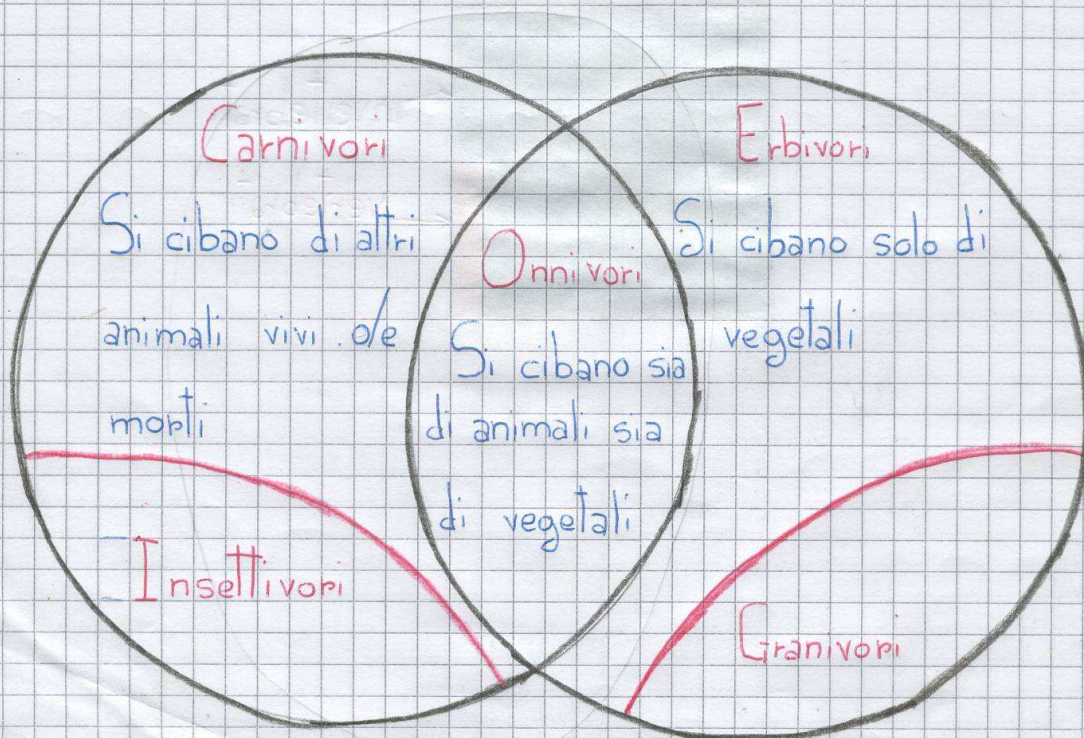 Carnivori
Si cibano di altri
animali vivi o/e
morti
Insettivori
Onnivori
Si cibano sia
di animali sia
di vegetali
Erbivori
Si cibano solo di
vegetali
Granivori